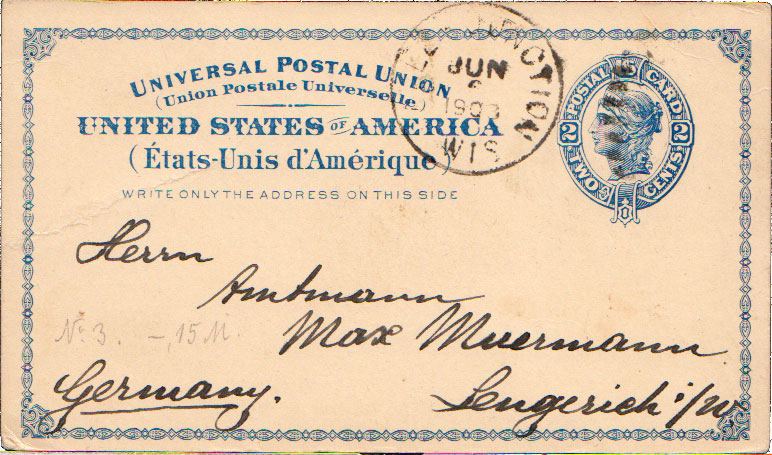 UNIVERSAL POSTAL UNION
(Union Postale Universelle)
UNITED STATES OF AMERICA
(États-Unis d'Amérique)
WRITE ONLY THE ADDRESS ON THIS SIDE
JUNCTION
JUN
WIS
POSTAL CARD
2 2
TWO CENTS
Herrn
Amtmann
No 3. —,15 M.
Max Muermann
Germany.
Lengerich i/W.